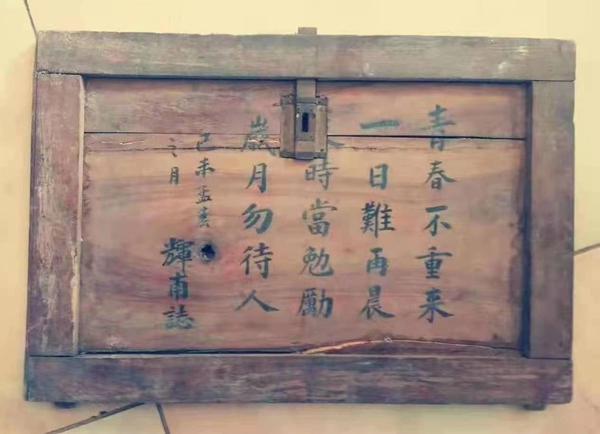 青春不重来
一日難再晨
時當勉勵
歲月勿待人
己未孟春
之月
輝甫誌